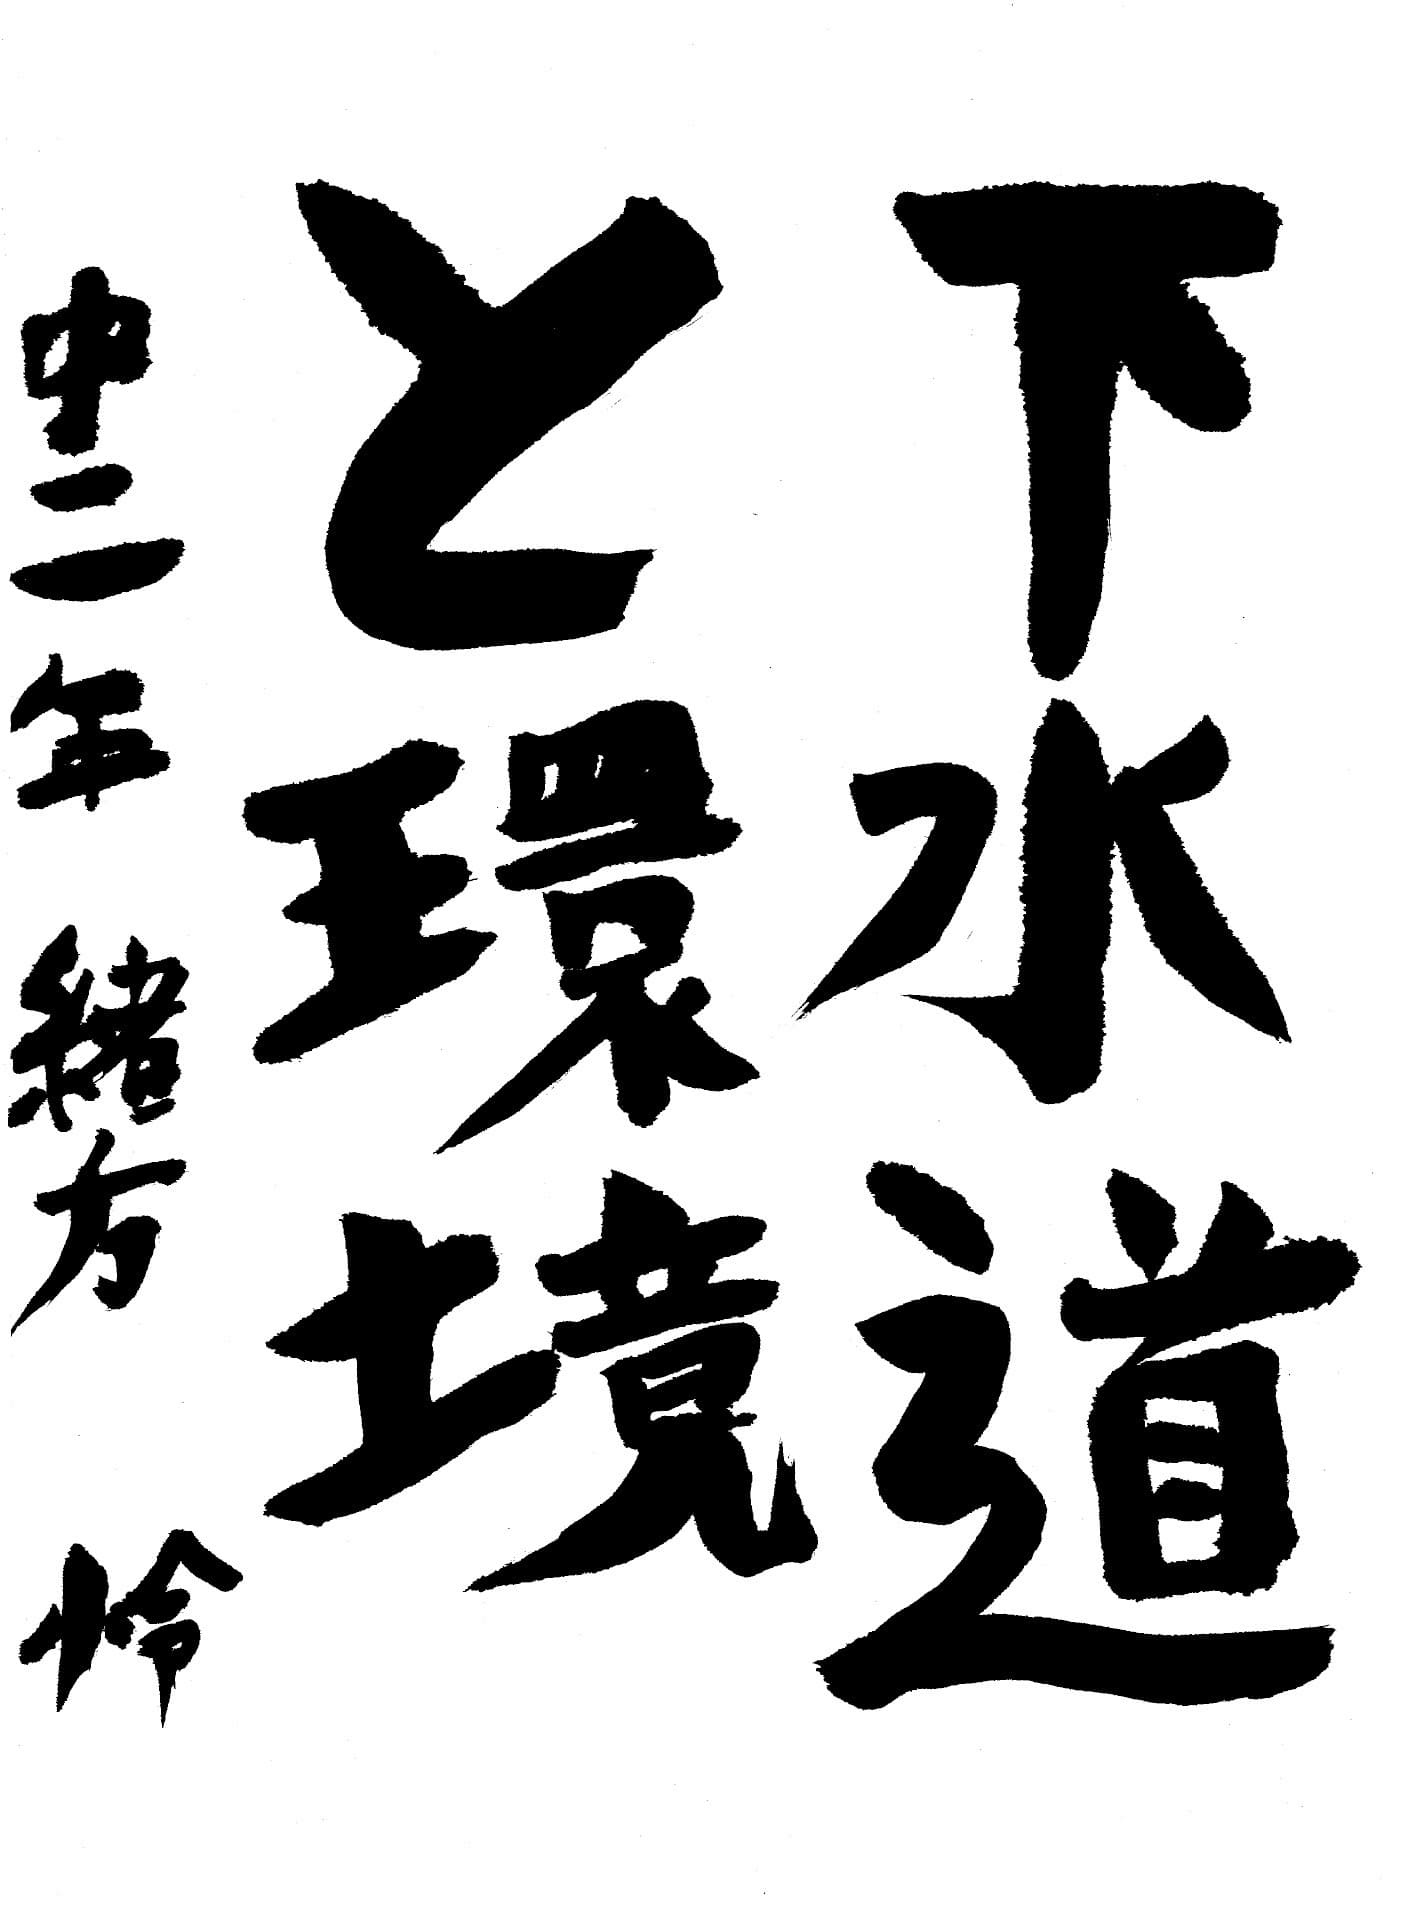 下水道
と環境
中二年 緒方 怜